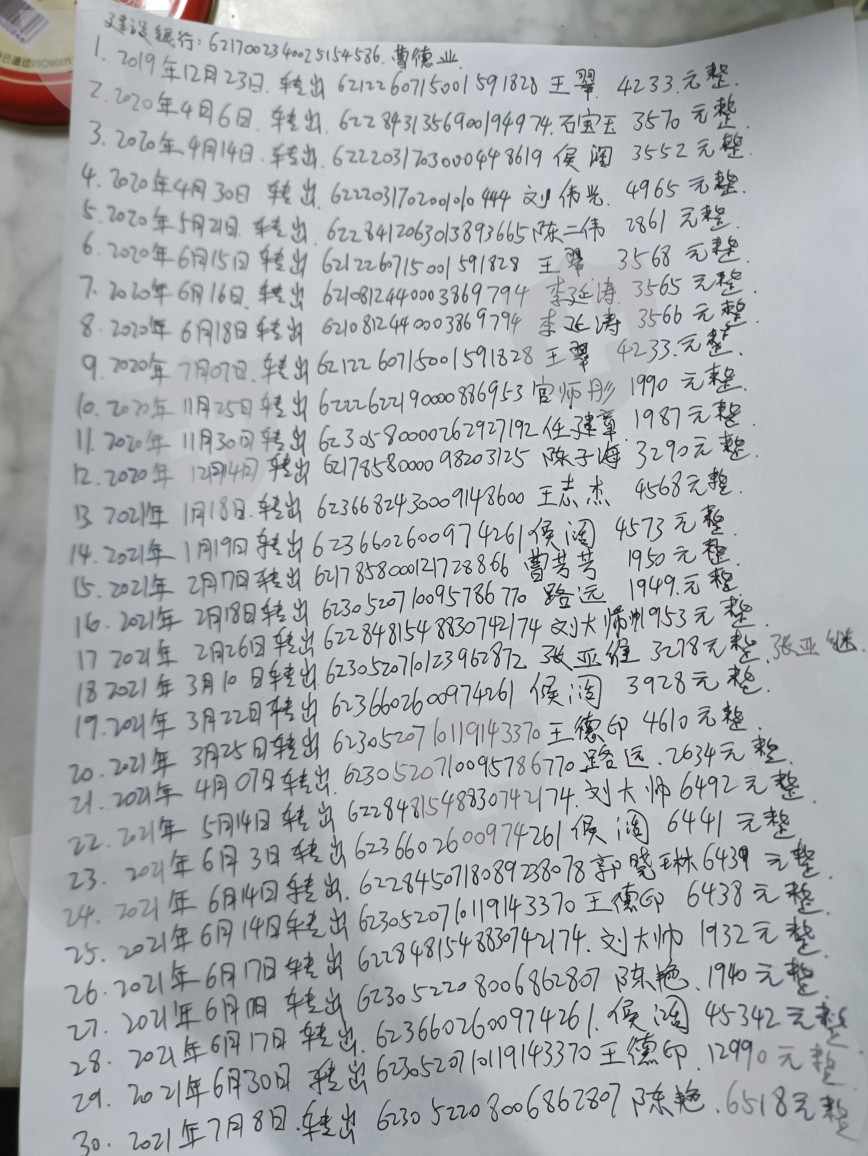 建设银行:6217002340025154536.曹德业.
1. 2019年12月23日.转出 6212260715001591828 王翠 4233.元整.
2. 2020年4月6日.转出.6228431356900194974.石宝玉 3570元整.
3. 2020年4月14日.转出.6222031703000448619 侯阔 3552元整.
4. 2020年4月30日 转出.6222031702001010444 刘伟光.4965元整.
5. 2020年5月21日.转出.6228412063013893665陈二伟 2861元整.
6. 2020年6月15日转出 6212260715001591828 王翠 3568元整.
7. 2020年6月16日.转出 6210812440003869794 李延涛.3565元整.
8. 2020年6月18日转出 6210812440003869794 李延涛 3566元整.
9. 2020年7月07日.转出6212260715001591828 王翠 4233.元整.
10. 2020年11月25日转出 6222622190000886953官师彤 1990元整.
11. 2020年11月30日转出 6230580000262927192.任建章 1987元整.
12. 2020年12月4日转出 6217858000098203125 陈子海 3290元整.
13 2021年1月18日.转出 6236682430009148600 王志杰 4568元整.
14. 2021年1月19日转出 6236602600974261侯阔 4573元整.
15. 2021年2月7日转出 6217858000121728866 曹芳芳 1950元整.
16. 2021年2月18日转出 6230520710095786770 路远 1949.元整.
17 2021年2月26日转出 6228481548830742174刘大帅1953元整.
18 2021年3月10日转出 6230520710123962872 张亚继 3278元整.张亚继.
19. 2021年3月22日转出 6236602600974261侯阔 3928元整.
20. 2021年3月25日转出 6230520710119143370王德印 4610元整.
21. 2021年4月07日.转出.6230520710095786770路远.2634元整.
22. 2021年5月14日转出 6228481548830742174.刘大帅 6492元整.
23. 2021年6月3日转出 6236602600974261侯阔 6441元整.
24. 2021年6月14日转出.6228450718089238078郭晓琳6439元整.
25. 2021年6月14日转出 6230520710119143370王德印 6438元整.
26. 2021年6月17日转出 6228481548830742174.刘大帅 1932元整.
27. 2021年6月 转出 6230522080006862807 陈艳.1940元整.
28. 2021年6月17日转出.6236602600974261.侯阔 45342元整.
29. 2021年6月30日 转出 6230520710119143370王德印.12990元整
30. 2021年7月8日.转出 6230522080006862807 陈艳.6518元整